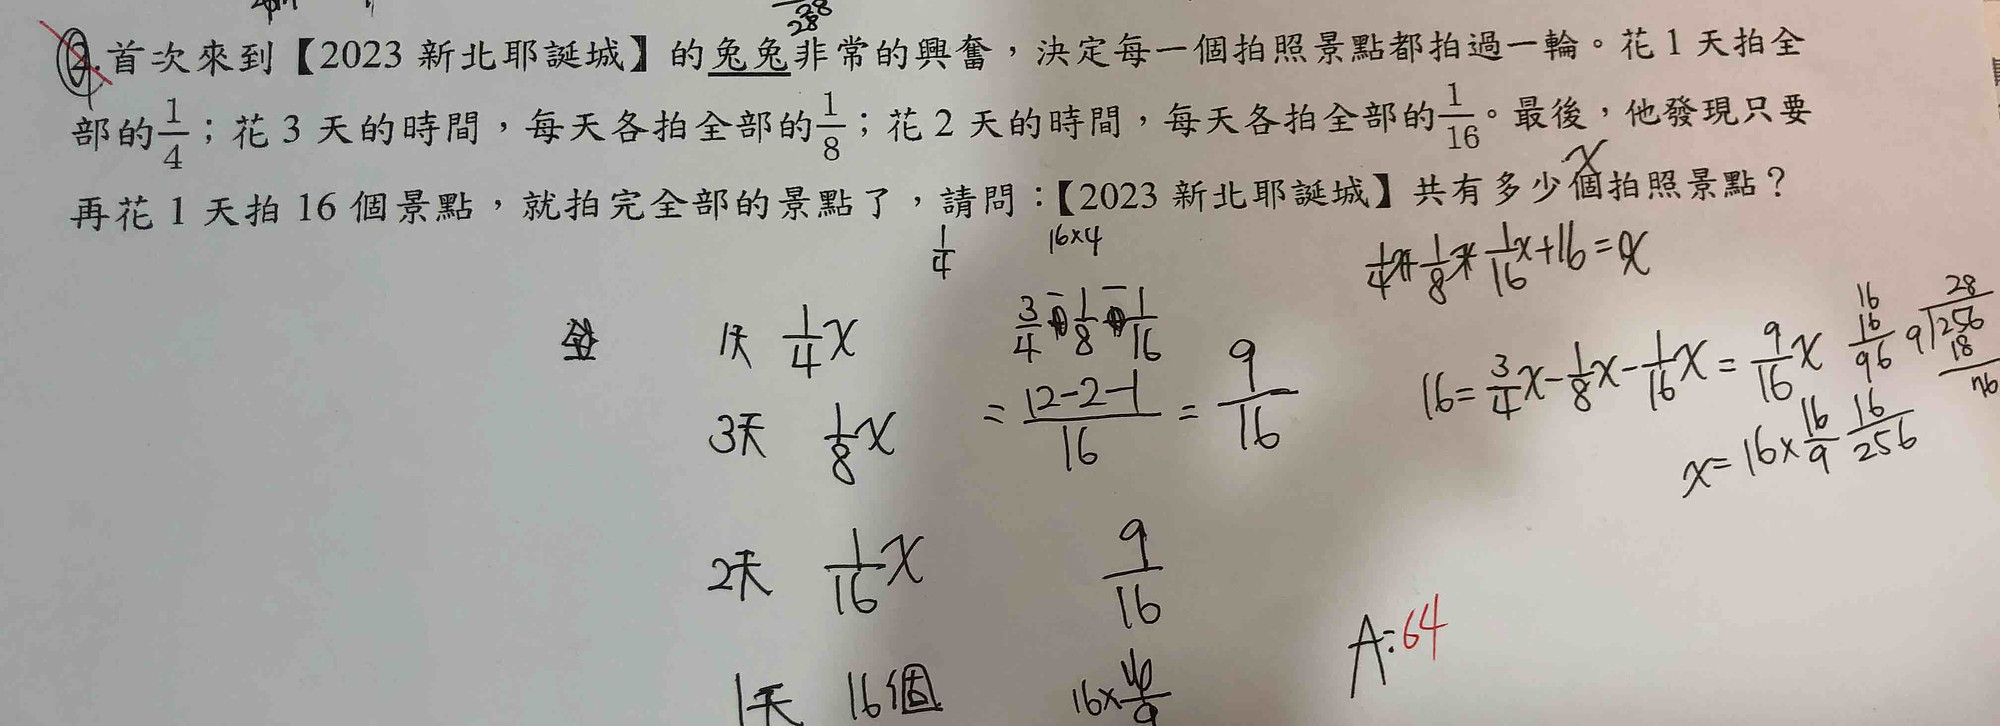 28
2.首次來到【2023 新北耶誕城】的兔兔非常的興奮，決定每一個拍照景點都拍過一輪。花 1 天拍全
部的1/4；花 3 天的時間，每天各拍全部的1/8；花 2 天的時間，每天各拍全部的1/16。最後，他發現只要
再花 1 天拍 16 個景點，就拍完全部的景點了，請問：【2023 新北耶誕城】共有多少個拍照景點？
x
1/4
16×4
1/4x+1/8x+1/16x+16=x
1天 1/4x
3/4-1/8-1/16
=12-2-1/16=9/16
16=3/4x-1/8x-1/16x=9/16x
16
16
96
16
256
28
9)256
18
76
x=16×16/9
3天 1/8x
2天 1/16x
9/16
A:64
1天 16個
16×16/9